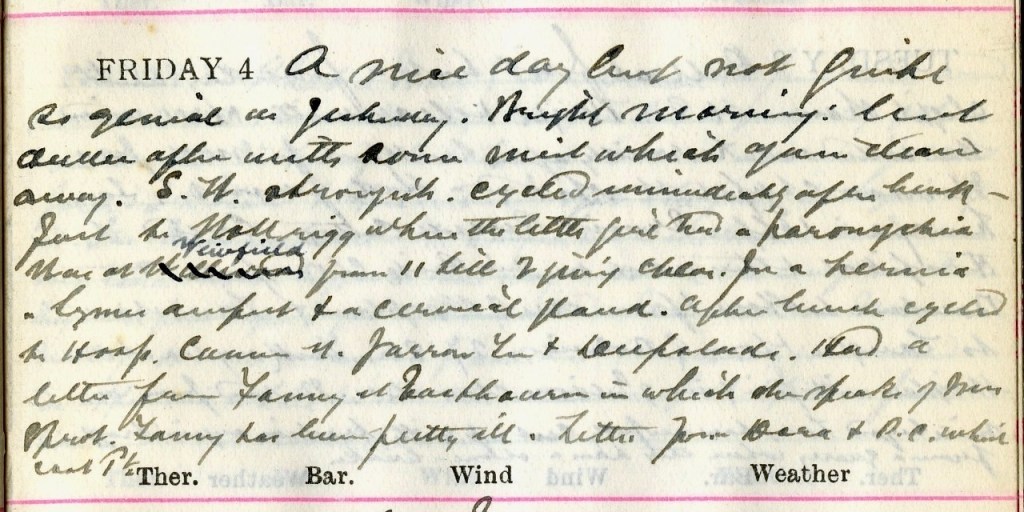 FRIDAY 4 A nice day but not quite
so genial as yesterday. Bright morning. but
duller after with some mist which again clears
away. S. W. strongish. cycled immediately after
first to where the little girl had a paronychia
Was at Newfield from 11 till 2 giving chlor. for a hernia
a & a cervical gland. After lunch cycled
to Hosp. N. & Deepslade. Had a
letter from Fanny at Eastbourne in which she speaks of Mrs
Fanny has been pretty ill. Letter from & P.C. which
cost
Ther. Bar. Wind Weather